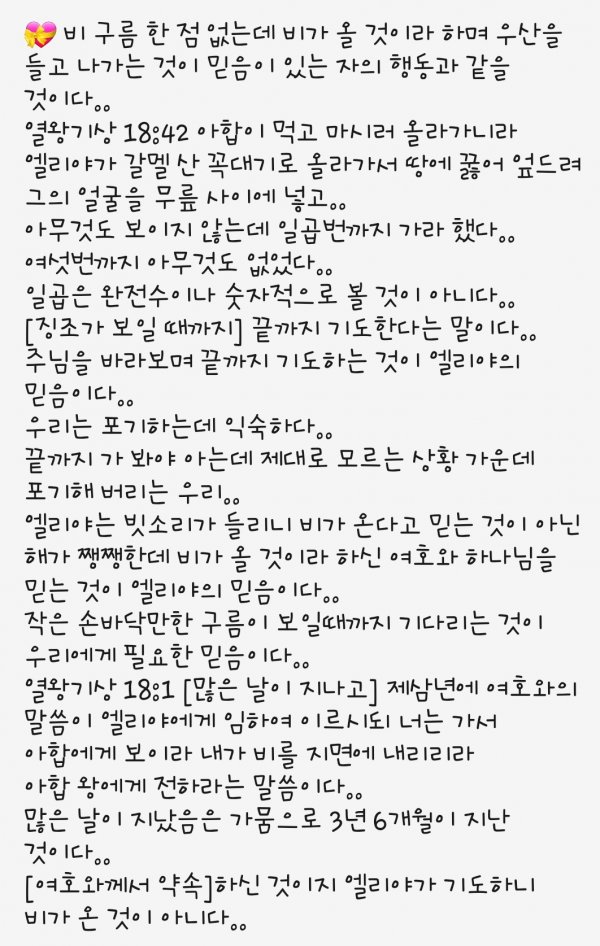 💝 비 구름 한 점 없는데 비가 올 것이라 하며 우산을
들고 나가는 것이 믿음이 있는 자의 행동과 같을
것이다..
열왕기상 18:42 아합이 먹고 마시러 올라가니라
엘리야가 갈멜 산 꼭대기로 올라가서 땅에 꿇어 엎드려
그의 얼굴을 무릎 사이에 넣고..
아무것도 보이지 않는데 일곱번까지 가라 했다..
여섯번까지 아무것도 없었다..
일곱은 완전수이나 숫자적으로 볼 것이 아니다..
[징조가 보일 때까지] 끝까지 기도한다는 말이다..
주님을 바라보며 끝까지 기도하는 것이 엘리야의
믿음이다..
우리는 포기하는데 익숙하다..
끝까지 가 봐야 아는데 제대로 모르는 상황 가운데
포기해 버리는 우리..
엘리야는 빗소리가 들리니 비가 온다고 믿는 것이 아닌
해가 쨍쨍한데 비가 올 것이라 하신 여호와 하나님을
믿는 것이 엘리야의 믿음이다..
작은 손바닥만한 구름이 보일때까지 기다리는 것이
우리에게 필요한 믿음이다..
열왕기상 18:1 [많은 날이 지나고] 제삼년에 여호와의
말씀이 엘리야에게 임하여 이르시되 너는 가서
아합에게 보이라 내가 비를 지면에 내리리라
아합 왕에게 전하라는 말씀이다..
많은 날이 지났음은 가뭄으로 3년 6개월이 지난
것이다..
[여호와께서 약속]하신 것이지 엘리야가 기도하니
비가 온 것이 아니다..